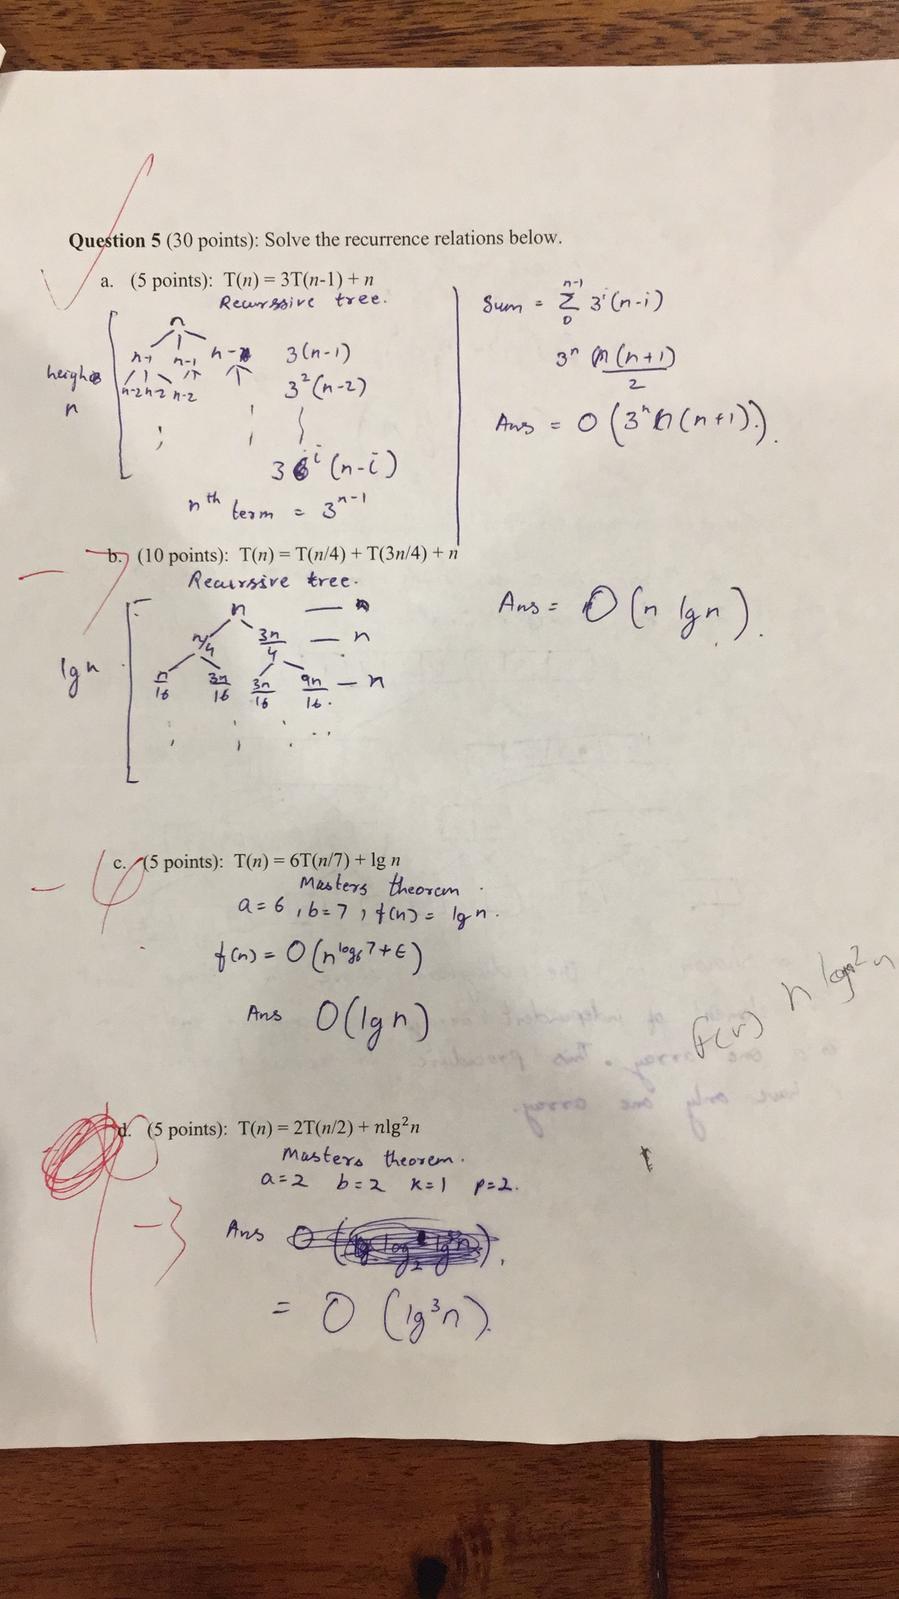 Question 5 (30 points): Solve the recurrence relations below.
a. (5 points): T(n) = 3T(n-1) + n
Recurssive tree.
n
n-1 n-1 n-1 3(n-1)
n-2 n-2 n-2 3²(n-2)
height
n
3^i (n-i)
nth term = 3^n-1
Sum = n-1 Σ 0 3^i (n-i)
3^n n(n+1)/2
Ans = O (3^n n(n+1)).
b. (10 points): T(n) = T(n/4) + T(3n/4) + n
-7
Recurssive tree.
n — n
n/4 3n/4 — n
n/16 3n/16 3n/16 9n/16 — n
lg n
Ans = O (n lg n).
c. (5 points): T(n) = 6T(n/7) + lg n
Masters theorem.
a=6, b=7, f(n) = lg n.
f(n) = O(n^log₆7+ϵ)
Ans O(lg n)
f(n) n lg² n
d. (5 points): T(n) = 2T(n/2) + nlg²n
Masters theorem.
a=2 b=2 k=1 p=2.
-3
Ans
= O (lg³n).